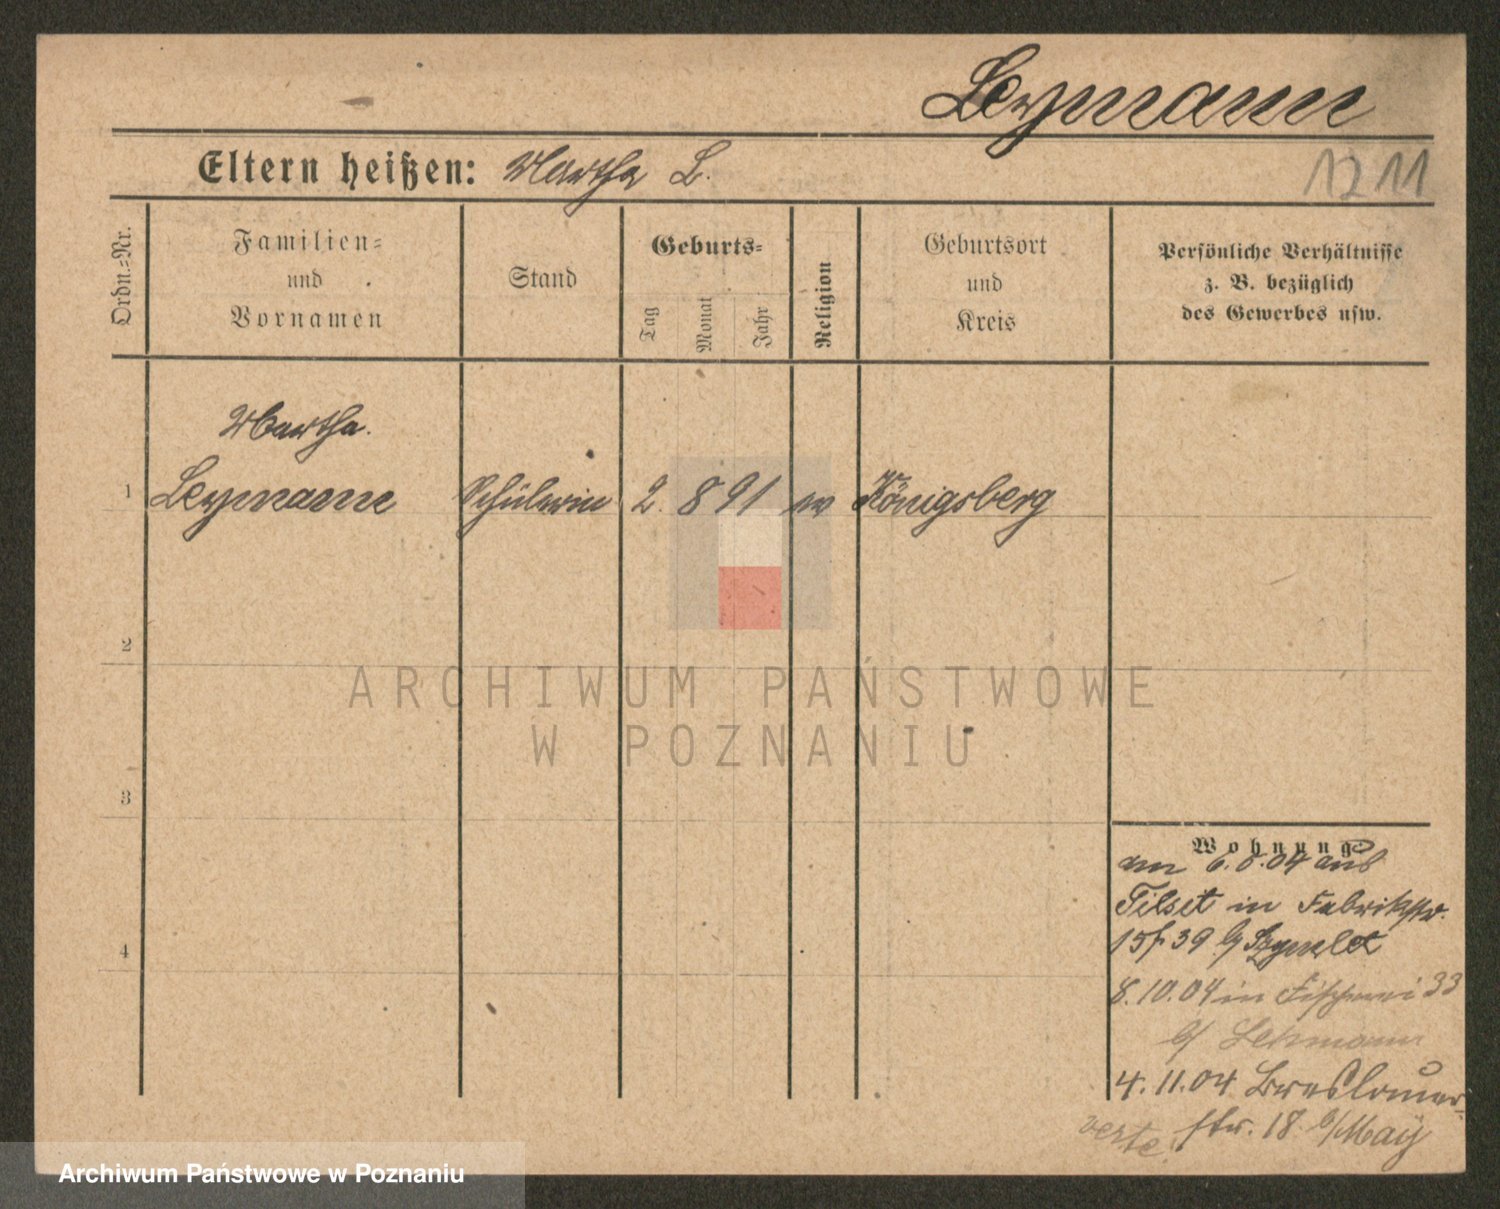 Leymann
Eltern heißen: Martha L.
1211
Ordn.=Nr.
Familien=
und
Vornamen
Stand
Geburts=
Tag
Monat
Jahr
Religion
Geburtsort
und
Kreis
Persönliche Verhältnisse
z. B. bezüglich
des Gewerbes usw.
Martha
1 Leymann Schülerin 2. 8 91 Königsberg
2
3
4
ARCHIWUM PAŃSTWOWE
W POZNANIU
Wohnung:
am 6.8.04 aus
Tilsit in Fabrikstr.
39 b/
8.10.04 in Fischerei 33
b/ Lehmann
4.11.04 Breslauer-
str. 18 b/ May
verte
Archiwum Państwowe w Poznaniu